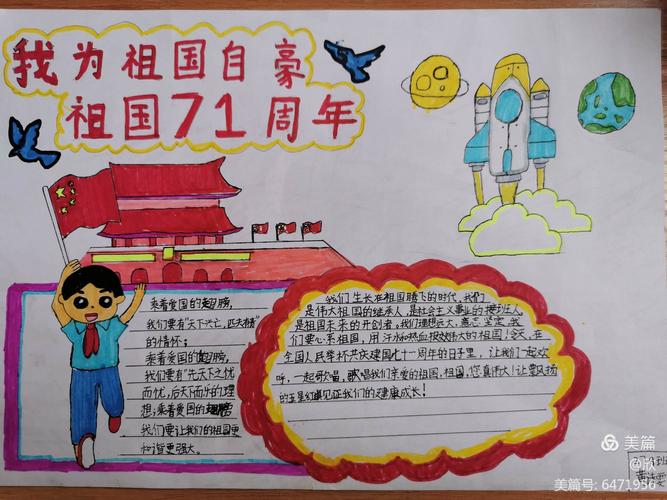 我为祖国自豪
祖国71周年
乘着爱国的翅膀,
我们要有"天下兴亡,匹夫有责"
的情怀;
乘着爱国的翅膀,
我们要有"先天下之忧
而忧,后天下而乐"的理
想;乘着爱国的翅膀
我们要让我们的祖国更
和谐更强大。
我们生长在祖国腾飞的时代,我们
是伟大祖国的继承人,是社会主义事业的接班人,
是祖国未来的开创者,我们理想远大,意志坚定,我
们要心系祖国,用汗水和热血报效伟大的祖国!今天,在
全国人民举杯共庆建国七十一周年的日子里,让我们一起欢
呼,一起歌唱,歌唱我们亲爱的祖国,祖国,您真伟大!让飘扬
的五星红旗见证我们的健康成长!
美篇
@欣
美篇号: 6471956
班